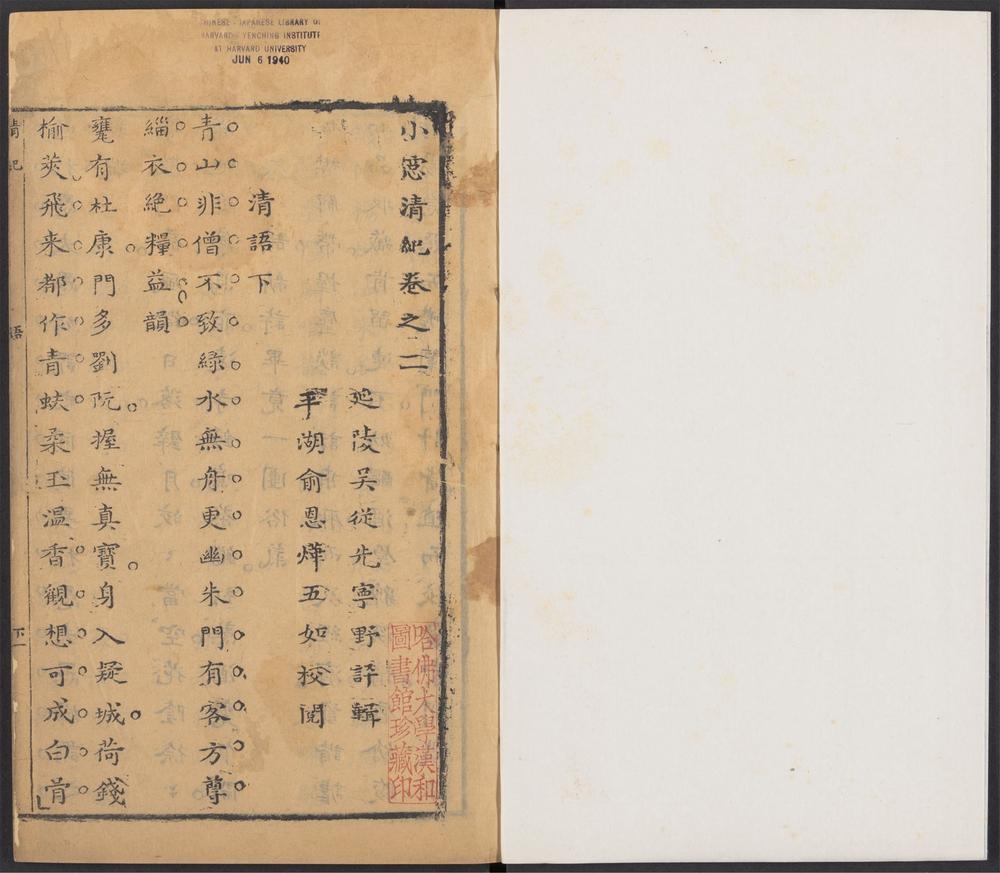 CHINESE - JAPANESE LIBRARY OF
HARVARD - YENCHING INSTITUTE
AT HARVARD UNIVERSITY
JUN 6 1940
小窓清紀卷之二
延陵吳從先寧野評輯
平湖俞恩燁五如校閱
哈佛大學漢和
圖書館珍藏印
清語下
青山非僧不致綠水無舟更幽朱門有客方尊
緇衣絶糧益韻
甕有杜康門多劉阮握無真寶身入疑城荷錢
榆莢飛来都作青蚨柔玉溫香觀想可成白骨
清紀
語
下一